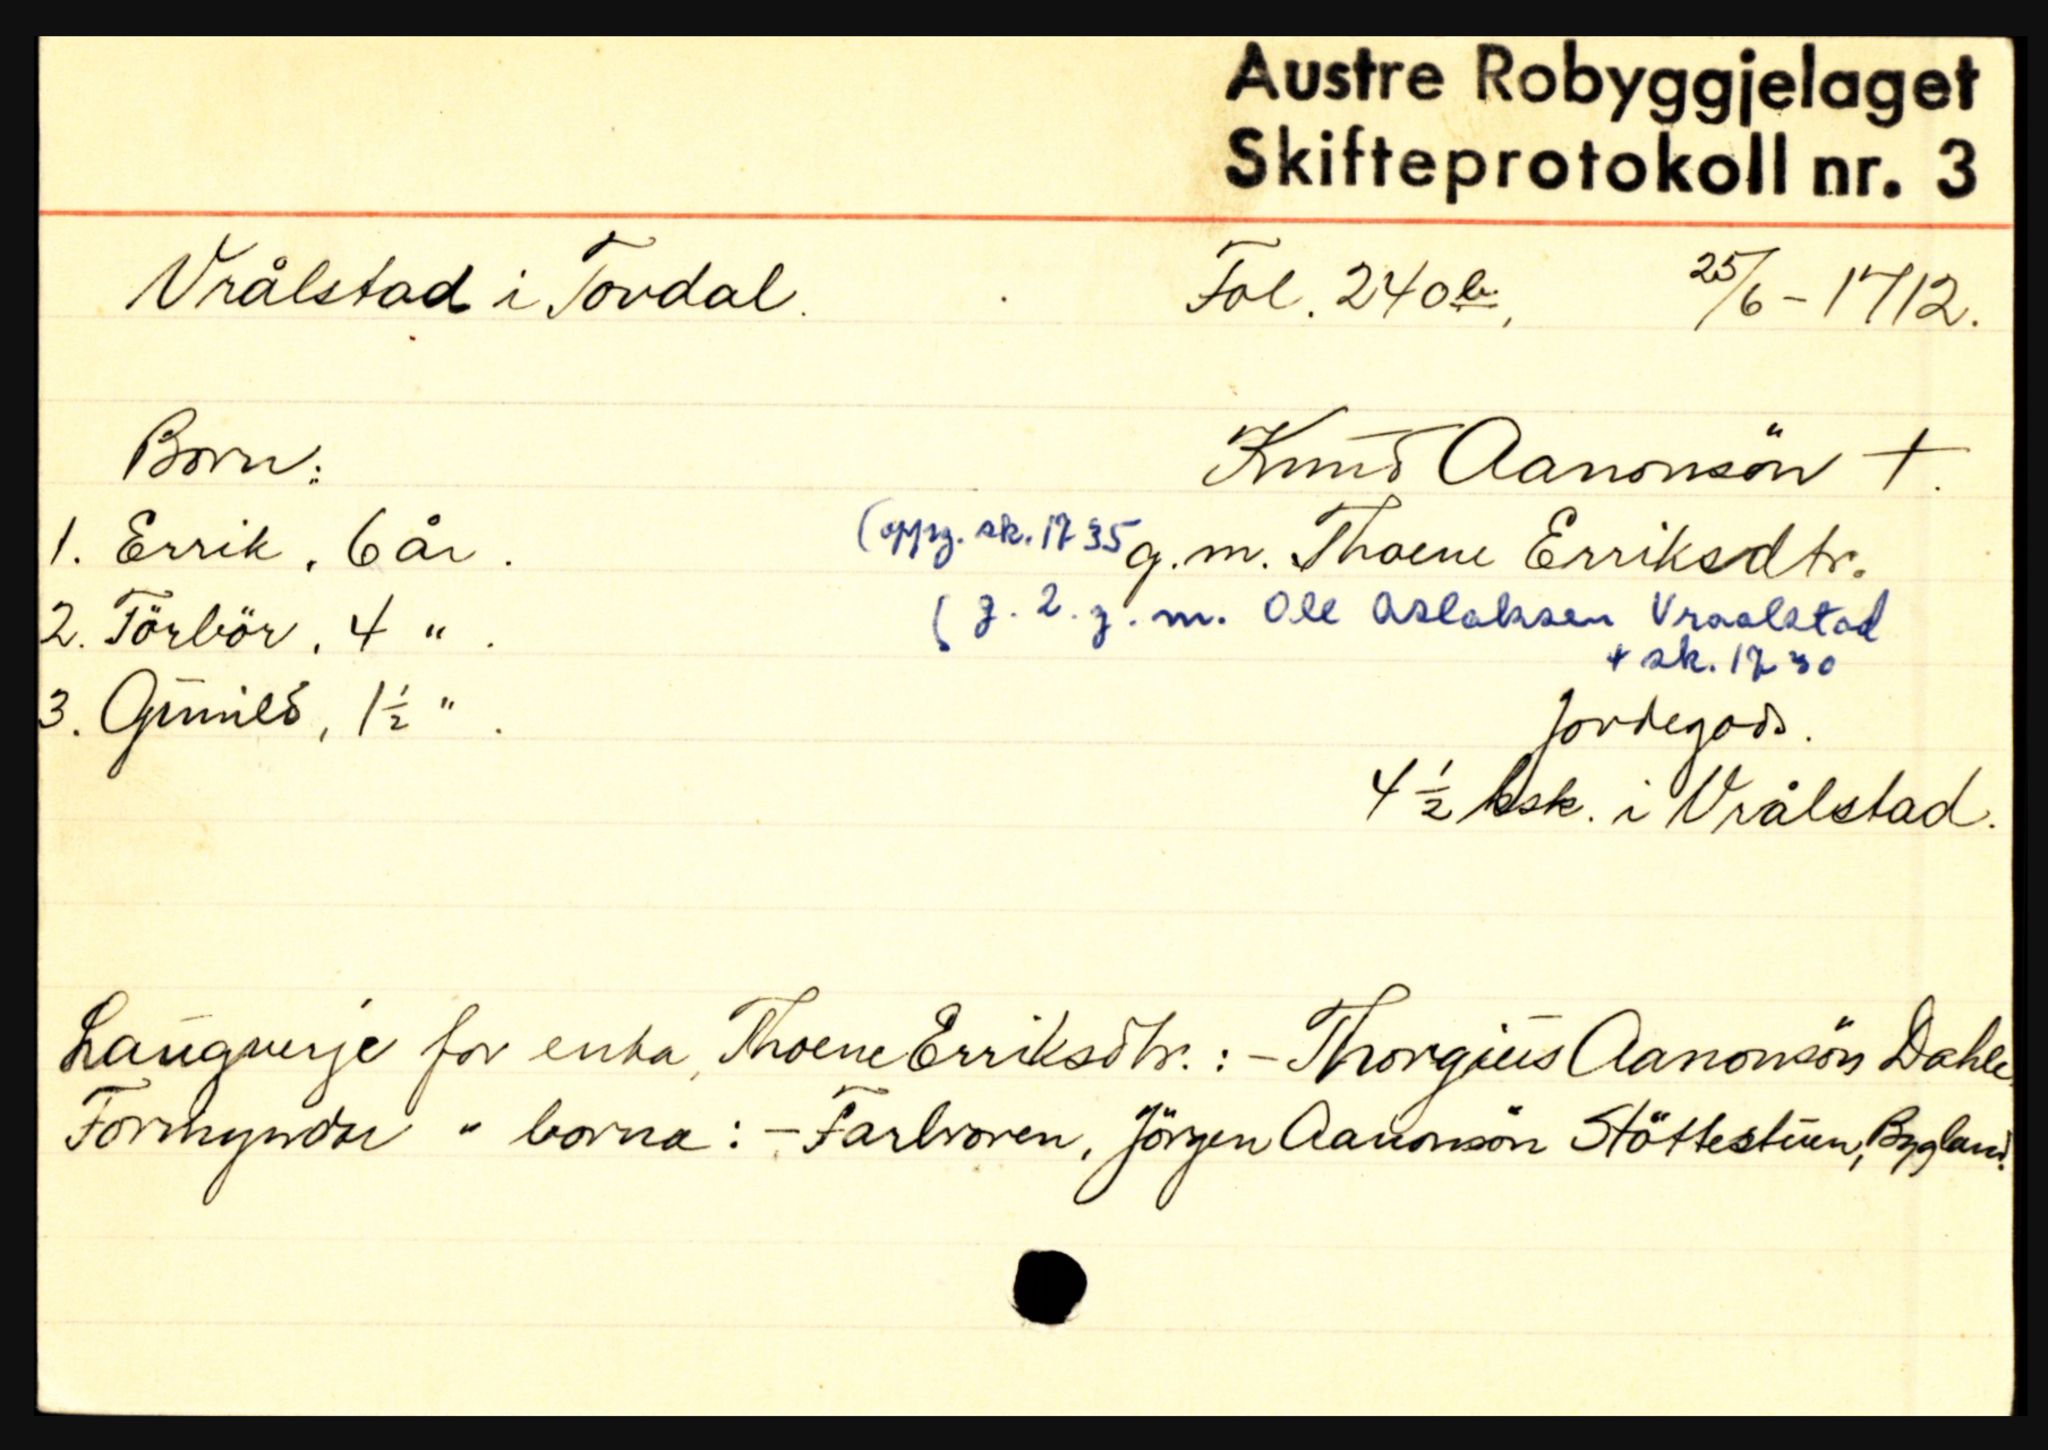 Austre Robyggjelaget
Skifteprotokoll nr. 3
Vrålstad i Tovdal. Fol. 240b., 25/6 - 1712.
Born: Knud Aanonsön +.
1. Errik, 6 år. (oppg. sk. 1735 g. m. Thoene Erriksdtr.
2. Törbör, 4 " . ( g. 2. g. m. Ole Aslaksen Vraalstad
+ sk. 1730
3. Gunild, 1 1/2 " . Jordegods.
4 1/2 ksk. i Vrålstad.
Laugverje for enka, Thoene Erriksdtr. : - Thorgius Aanonsön Dahle.
Formyndar " borna : - Farbroren, Jörgen Aanonsön Stöttestuen, Bygland.